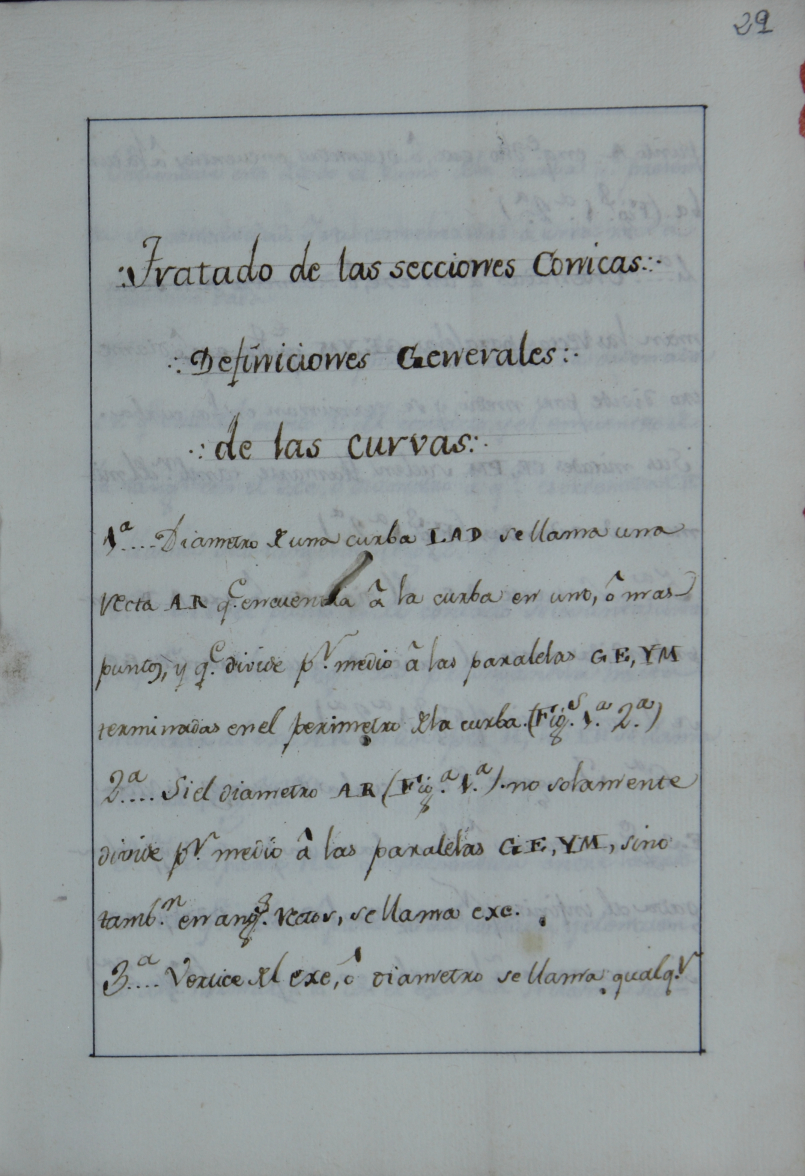 29
.:Tratado de las secciones Conicas:.
.:Definiciones Generales:.
.:de las curvas:.
1ª....Diametro de una curba LAD se llama una
recta AR q.e encuentra â la curba en uno, ô mas
puntos, y q.e divide p.r medio â las paralelas GE, YM
terminadas en el perimetro de la curba. (Fig.s 1.ª 2.ª)
2ª.... Si el diametro AR (Fig.ª 1.ª) no solamente
divide p.r medio â las paralelas GE, YM, sino
tamb.n en ang.s rectos, se llama exe.
3ª.... Vertice del exe, ô diametro se llama qualq.r